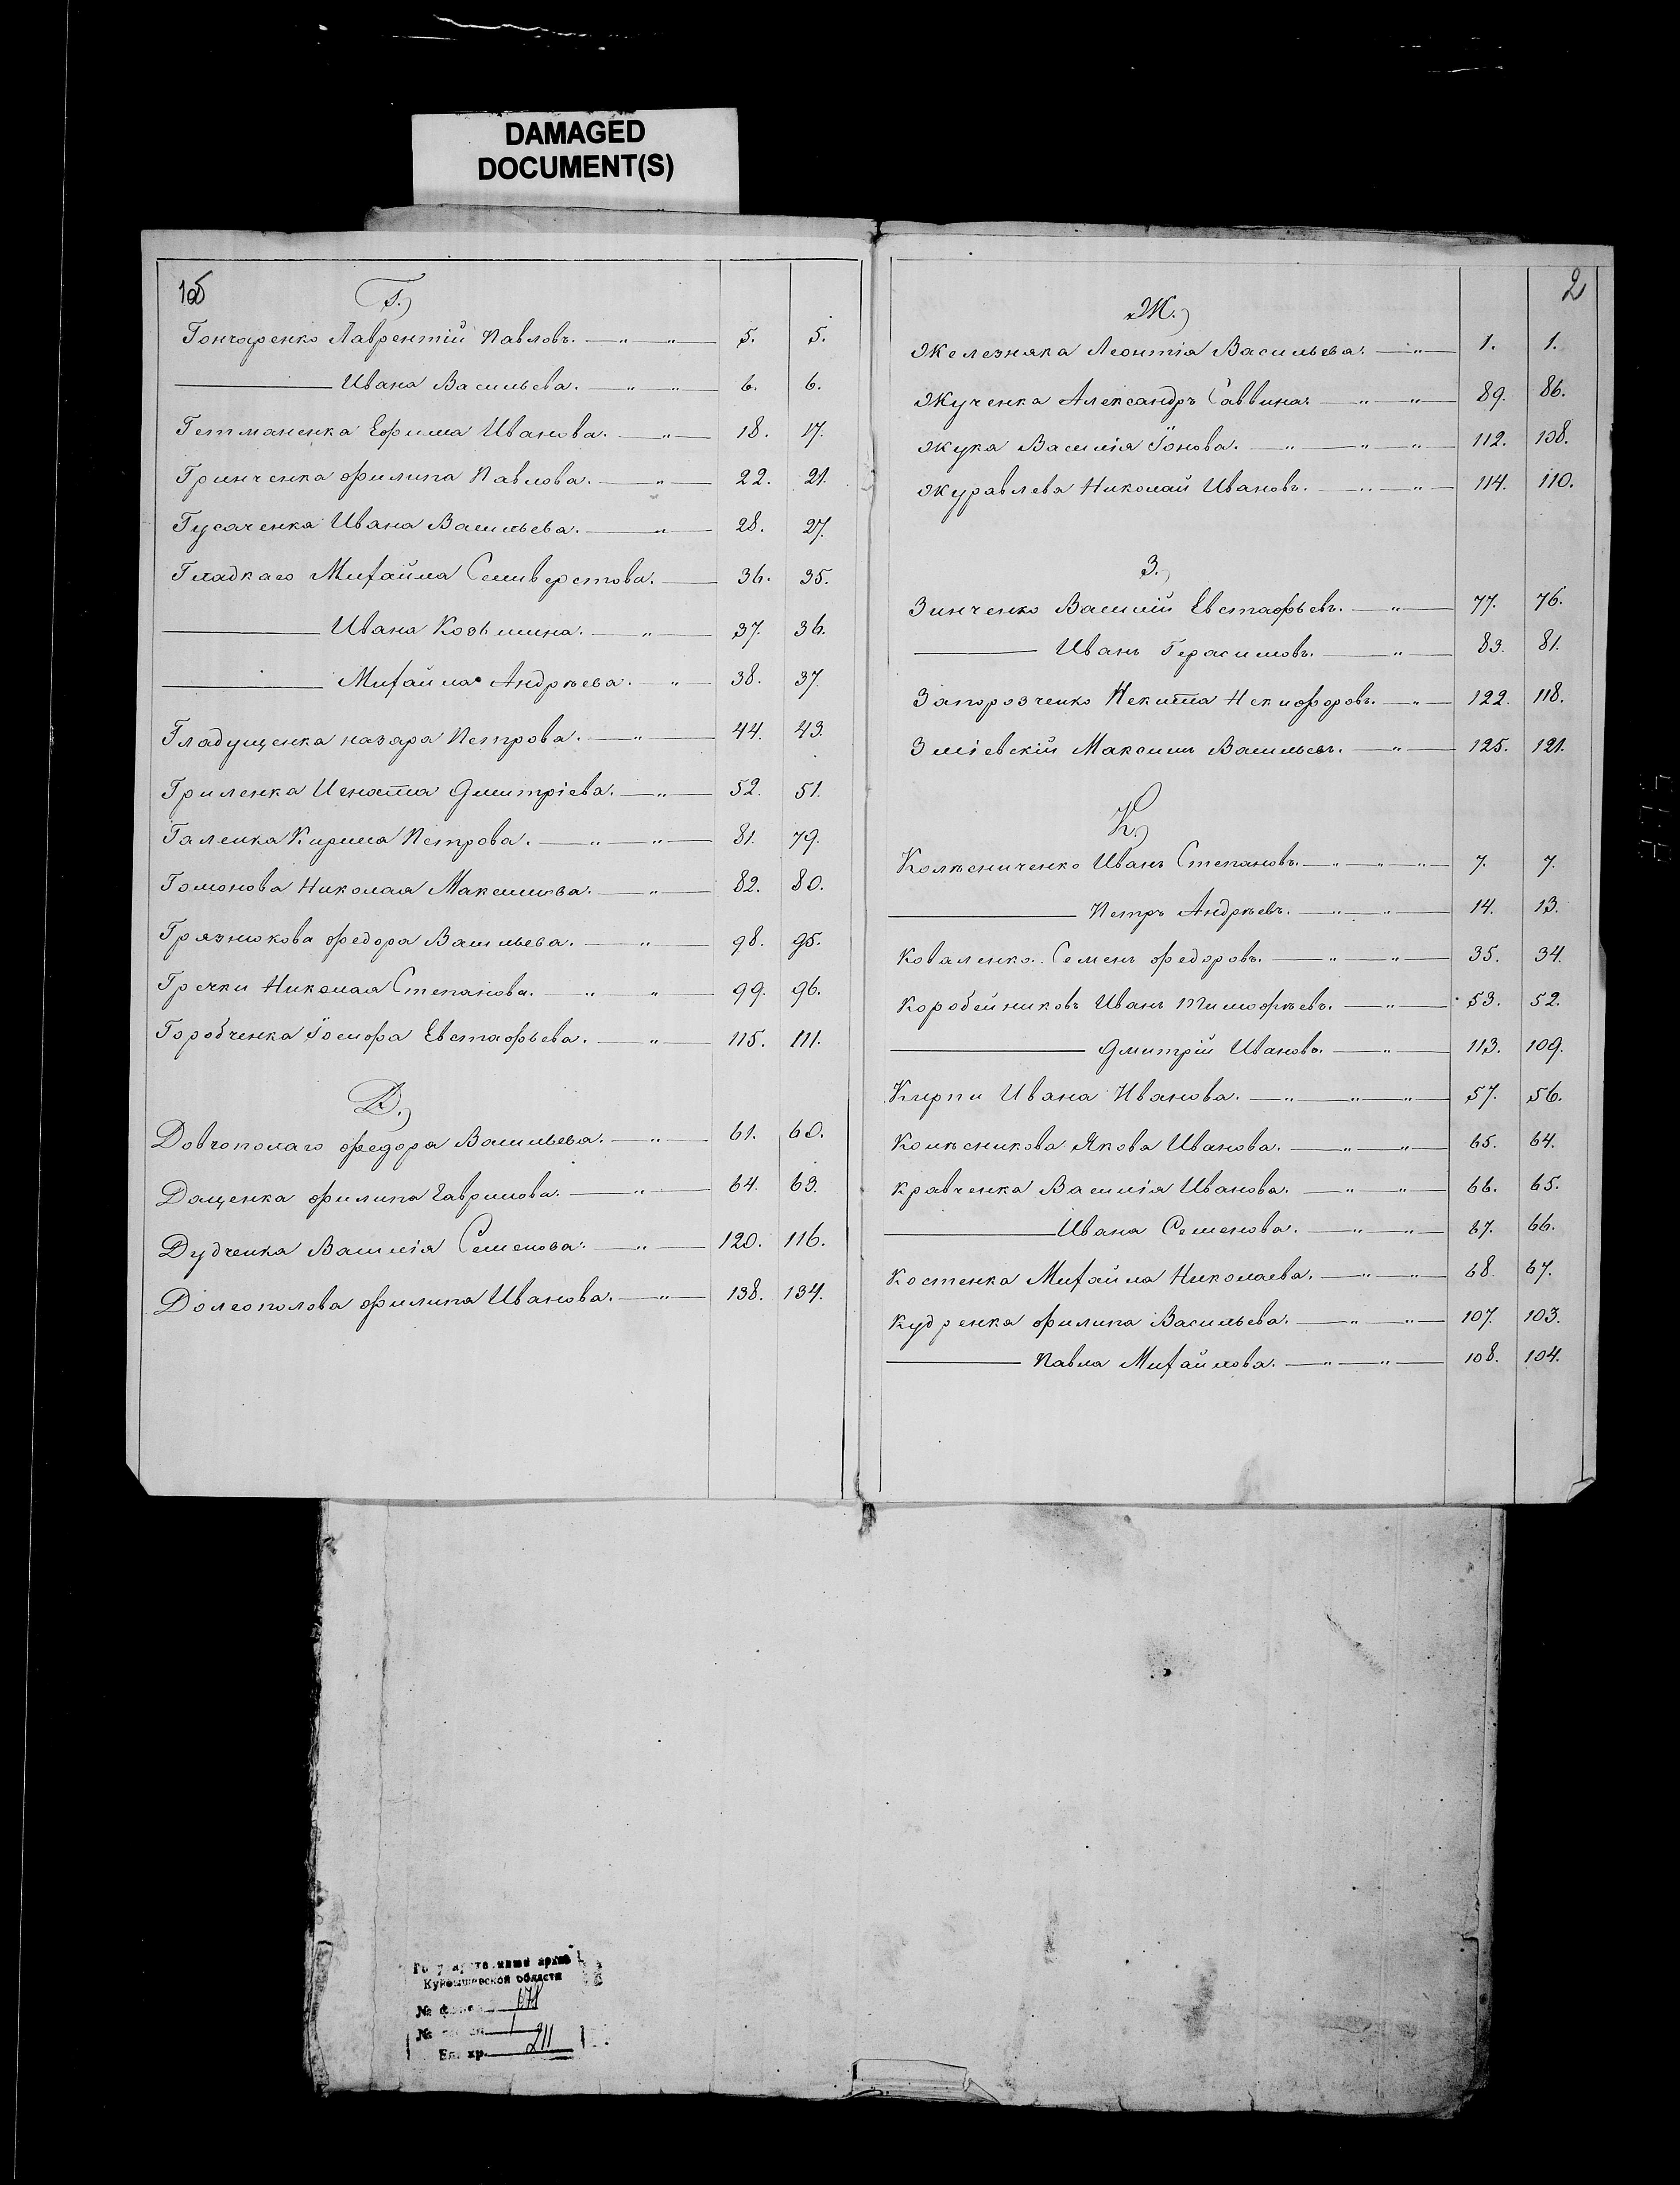 DAMAGED
DOCUMENT(S)
1об
Г.)
Гончаренко Лаврентій Павловъ. — " — " — 5. 5.
— Ивана Васильева. — " — " — 6. 6.
Гетманенка Ефима Иванова. — " — 18. 17.
Гринченка Филипа Павлова. — " — 22. 21.
Гусаченка Ивана Васильева. — " — 28. 27.
Гладкаго Михайла Селиверстова. — 36. 35.
— Ивана Козьмина. — " — 37. 36.
— Михайла Андрѣева. — " — 38. 37.
Гладущенка Назара Петрова. — " — 44. 43.
Гриленка Игната Дмитріева. — " — 52. 51.
Галенка Кирила Петрова. — " — " — 81. 79.
Гомонова Николая Максимова. — " — 82. 80.
Грязнюкова Федора Васильева. — " — 98. 95.
Гречки Николая Степанова. — " — " — 99. 96.
Горобченка Іосифа Евстафьева. — " — 115. 111.
Д.)
Довгополаго Федора Васильева. — " — 61. 60.
Дащенка Филипа Гаврилова. — " — 64. 63.
Дудченка Василія Семенова. — " — 120. 116.
Долгополова Филипа Иванова. — " — 138. 134.
2
Ж.)
Железняка Леонтія Васильева. — " — 1. 1.
Жученка Александръ Саввина. — " — " — 89. 86.
Жука Василія Іонова. — " — " — " — 112. 108.
Журавлева Николай Ивановъ. — " — " — 114. 110.
З.)
Зинченко Василій Евстафьевъ. — " — 77. 76.
— Иванъ Герасимовъ. — " — 83. 81.
Запорозченко Некита Некифоровъ. — " — 122. 118.
Зміевскій Максимъ Васильевъ. — " — 125. 121.
К.)
Колѣсниченко Иванъ Степановъ. — " — " — " — 7. 7.
— Петръ Андрѣевъ. — " — " — 14. 13.
Коваленко Семенъ Федоровъ. — " — " — 35. 34.
Коробейниковъ Иванъ Тимофѣевъ. — " — 53. 52.
— Дмитрій Ивановъ. — " — 113. 109.
Кирпи Ивана Иванова. — " — " — " — 57. 56.
Колѣсникова Якова Иванова. — " — " — 65. 64.
Кравченка Василія Иванова. — " — " — 66. 65.
— Ивана Семенова. — " — " — 67. 66.
Костенка Михайла Николаева. — " — " — 68. 67.
Кудренка Филипа Васильева. — " — " — 107. 103.
— Павла Михайлова. — " — " — 108. 104.
Куйбышевской области
1
Ед. хр. 211